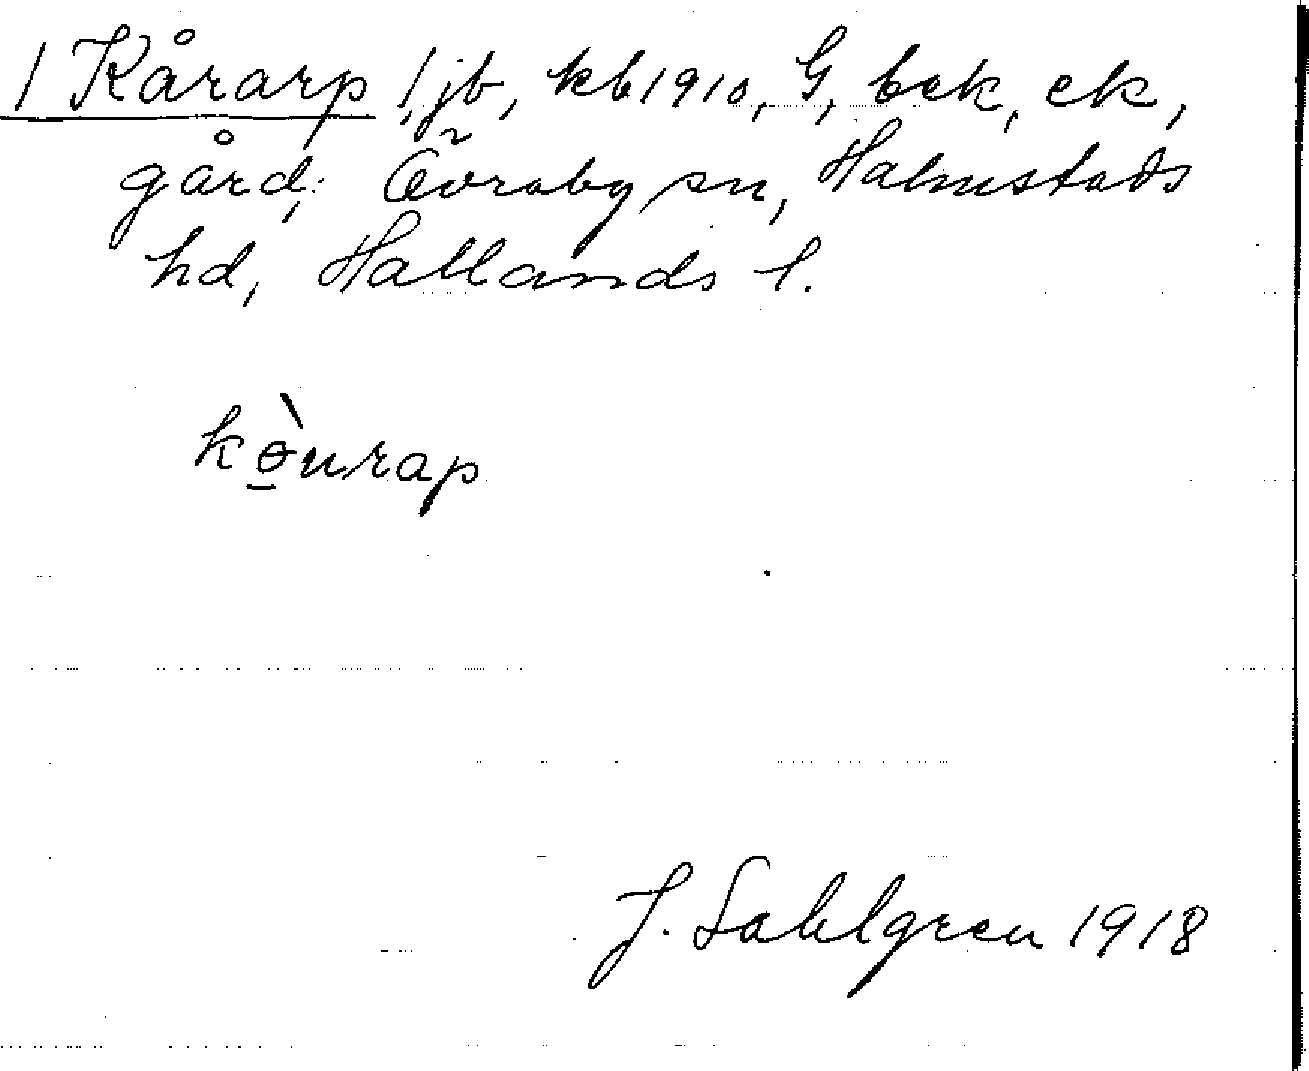 / Kårarp /, jb, kb 1910, G, bek, ek,
gård; Övraby sn, Halmstads
hd, Hallands l.
kɵ̠̀urap
J. Sahlgren 1918